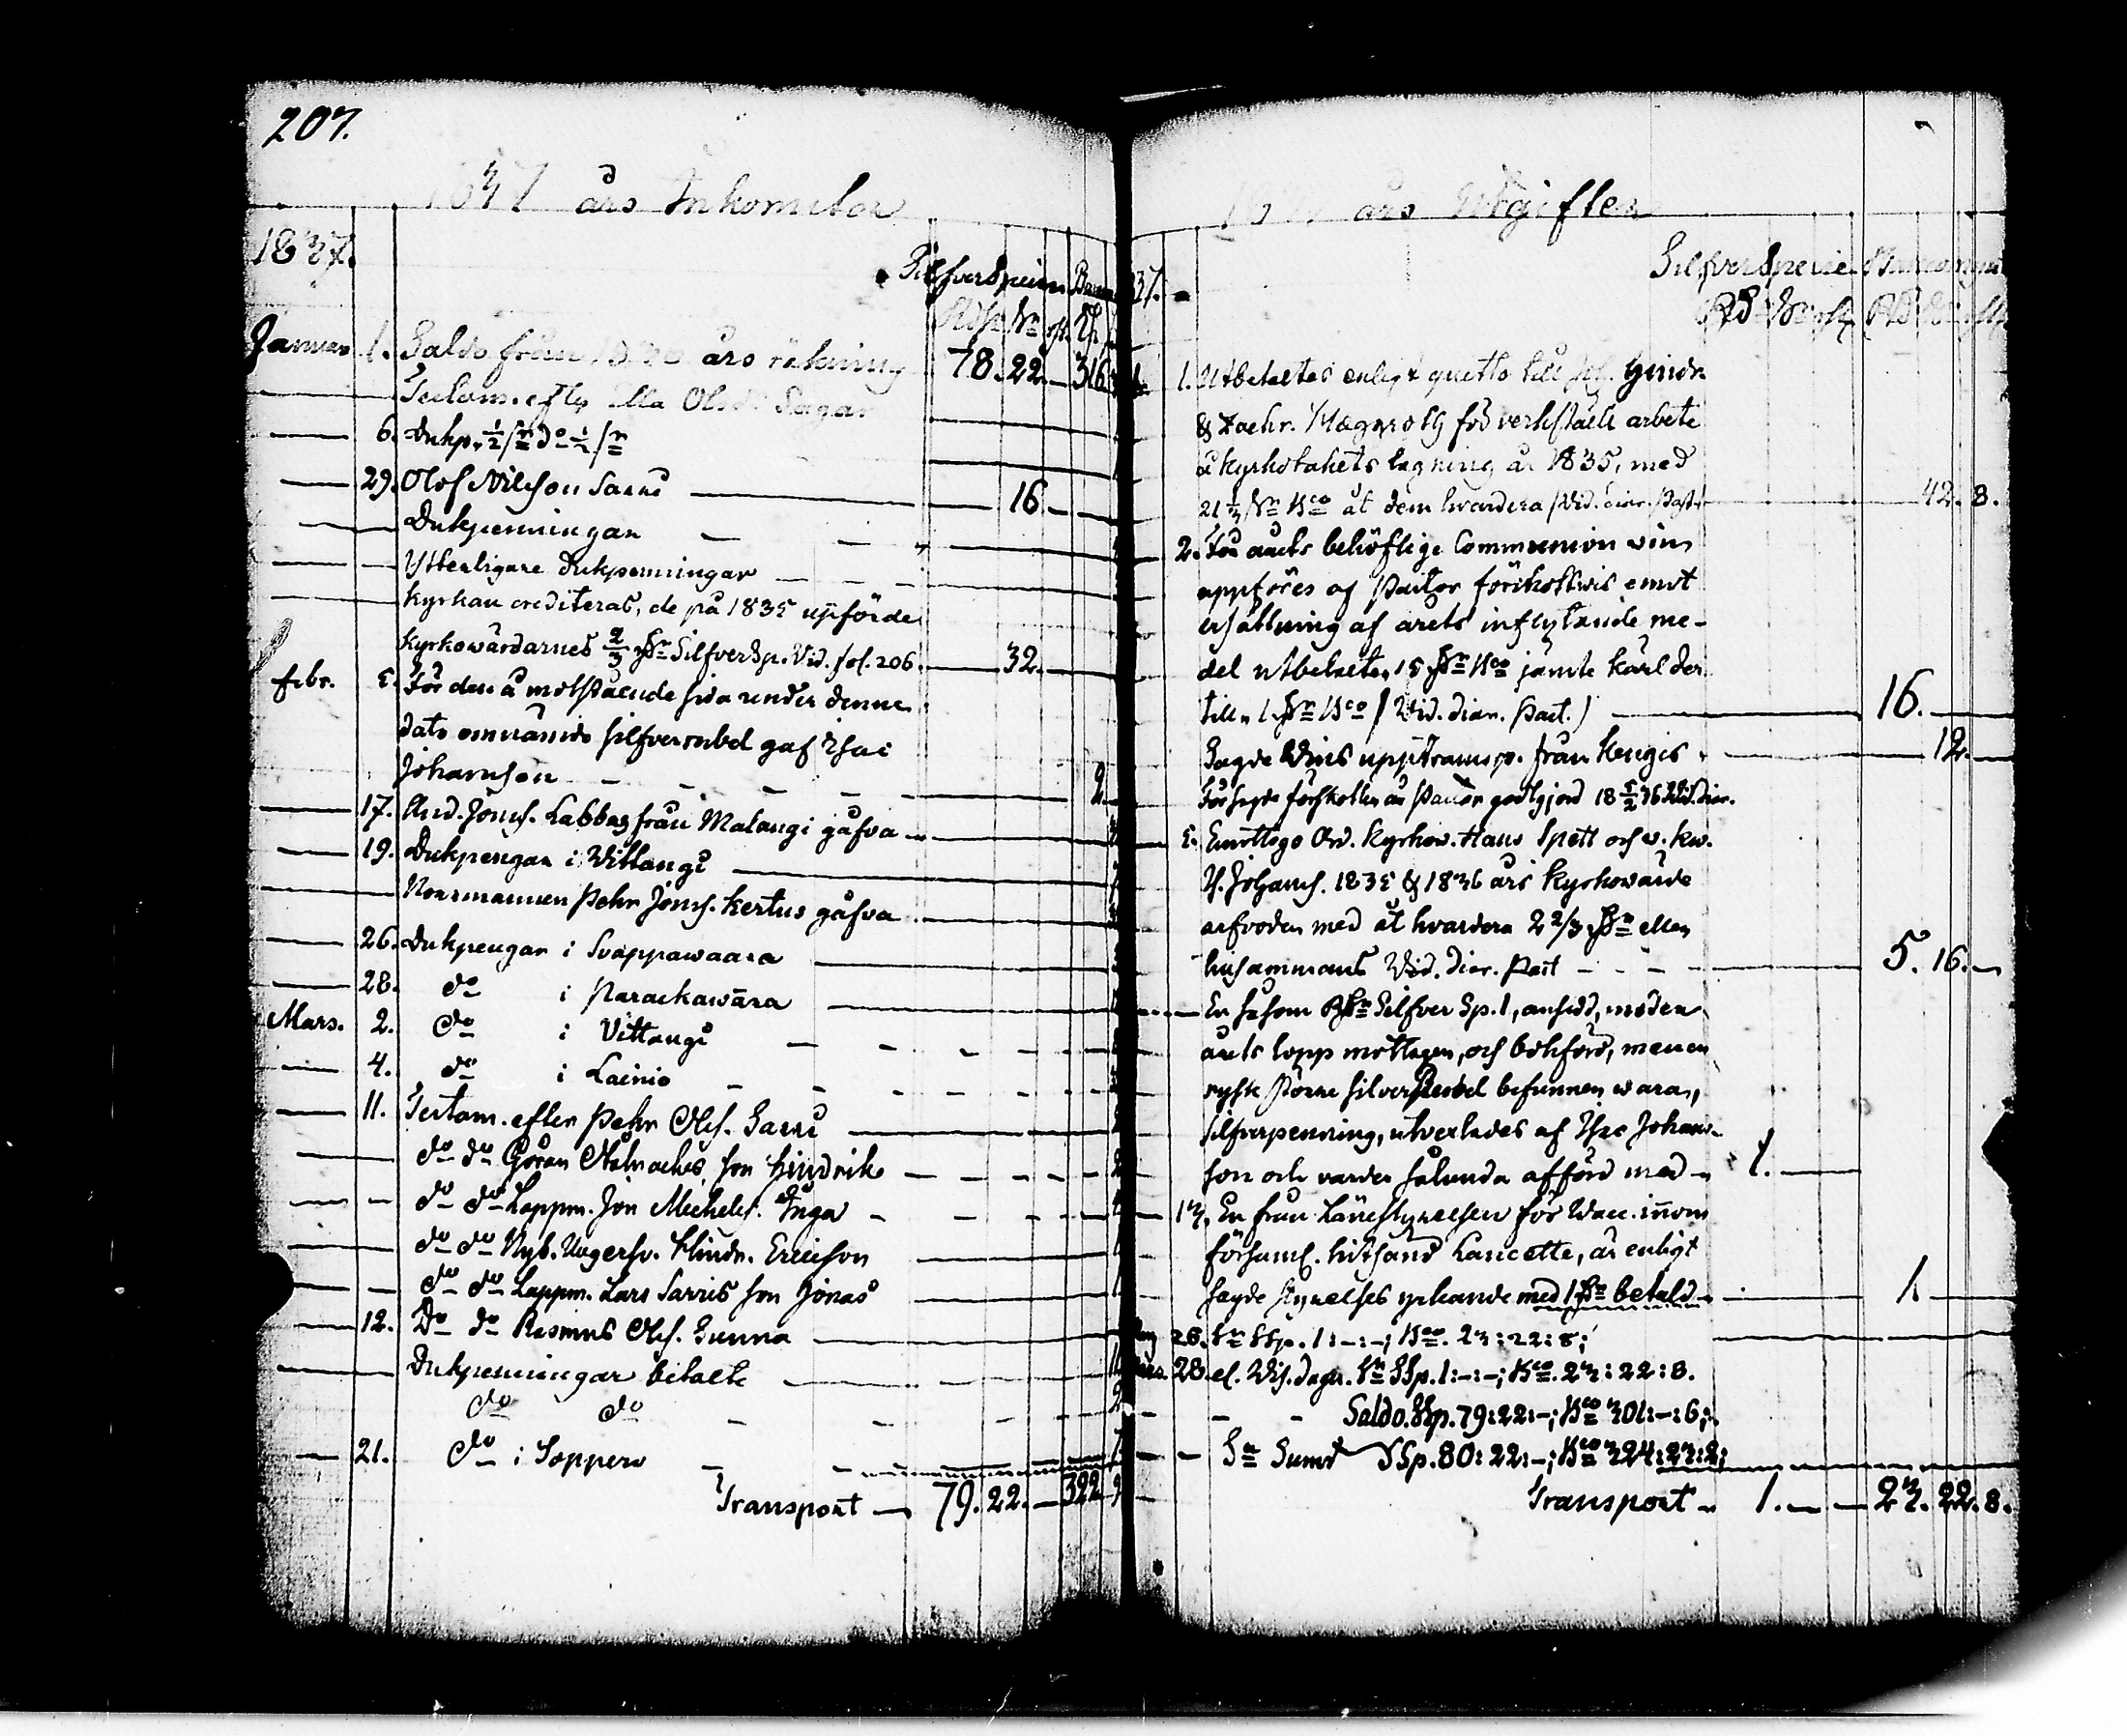 207.
1837 års Inkomster
1837.
Silfver Specie Banco
Januari 1. Saldo från 1836 års räkning 78. 22. — 316
Testam. efter Olofs
6. Dukp.
29. Olof Nilsson Sarri — 16. —
Dukpenningar — —
Ytterligare Dukpenningar — — —
Kyrkan crediteras, de på 1835 upförde
kyrkowärdarnes 2/3 Silfver Sp. Vid. fol. 206. — 32. —
febr. 5. För den å motstående sida under denna
dato omnämnde silfverrubel gaf Isac
Johansson — — — 2.
17. And. Jönss. Labbas från Matangi gåfva —
19. Dukpengar i Vittangi —
Norrmannen Pehr Jönss. Kertus gåfva —
26. Dukpengar i Svappawaara —
28. do i Parackawara —
Mars. 2. do i Vittangi — — —
4. do i Lainio — — —
11. Testam. efter Pehr Olss. Sarri —
do do Göran son Hindrik — — —
do do Lappm. Jon Michels. Inga — — —
do do Nyb. Hindr. Ericsson —
do do Lappm. Lars Sarris son Jonas —
12. Do do Rasmus Olss. Gunna —
Dukpenningar betalte —
do do — — —
21. do i Soppero — —
Transport — 79. 22. — 322
års Utgifter
37.
Silfver Specie Banco
1. Utbetaltes enligt quitto till Hindr.
& Zachr. Häggroth för verkstäldt arbete
å kyrkotakets lagning år 1835, med
21 1/3 åt dem hvardera /Vid. diar. Past./ 42. 8.
2. För årets behöflige Communion vin
uppföres af Pastor förskottwis emot
ersättning af årets inflytande me-
del utbetalte 15 Bco jämte kärl der
till 1 Bco / Vid. diar. Past. / — 16. —
Sagde Vins upptransp. från Kengis — 12. —
För sagde förskotter är Pastor godtgjord
5. Emottogo Ord. Kyrkow. Hans Spett och v. kw.
Johanss. 1835 & 1836 års kyrkowärde
arfvoden med åt hvardera 2 2/3 eller
tillsammans Vid. diar. Past — — — 5. 16. —
— En såsom Silfver Sp. 1, ansedd, under
årets lopp mottagen, och bokförd, men en
rysk större silfver Rubel befunnen wara,
silfverpenning, utvexlades af Isac Johans-
son och varder sålunda afförd med — 1. —
13. En från Länestyrelsen för Vacc. inom
församl. hitsänd Lancette, är enligt
sagde styrelses yrkande med 1 betald — 1. —
28. Sp. 1:–:–; Bco. 23:22:8;
28. Sp. 1:–:–; Bco. 23:22:8.
Saldo. Sp. 79:22:–; Bco 301:–:6;
Sa Summa Sp. 80:22:–; Bco 324:23:2;
Transport — 1. — — 23. 22. 8.